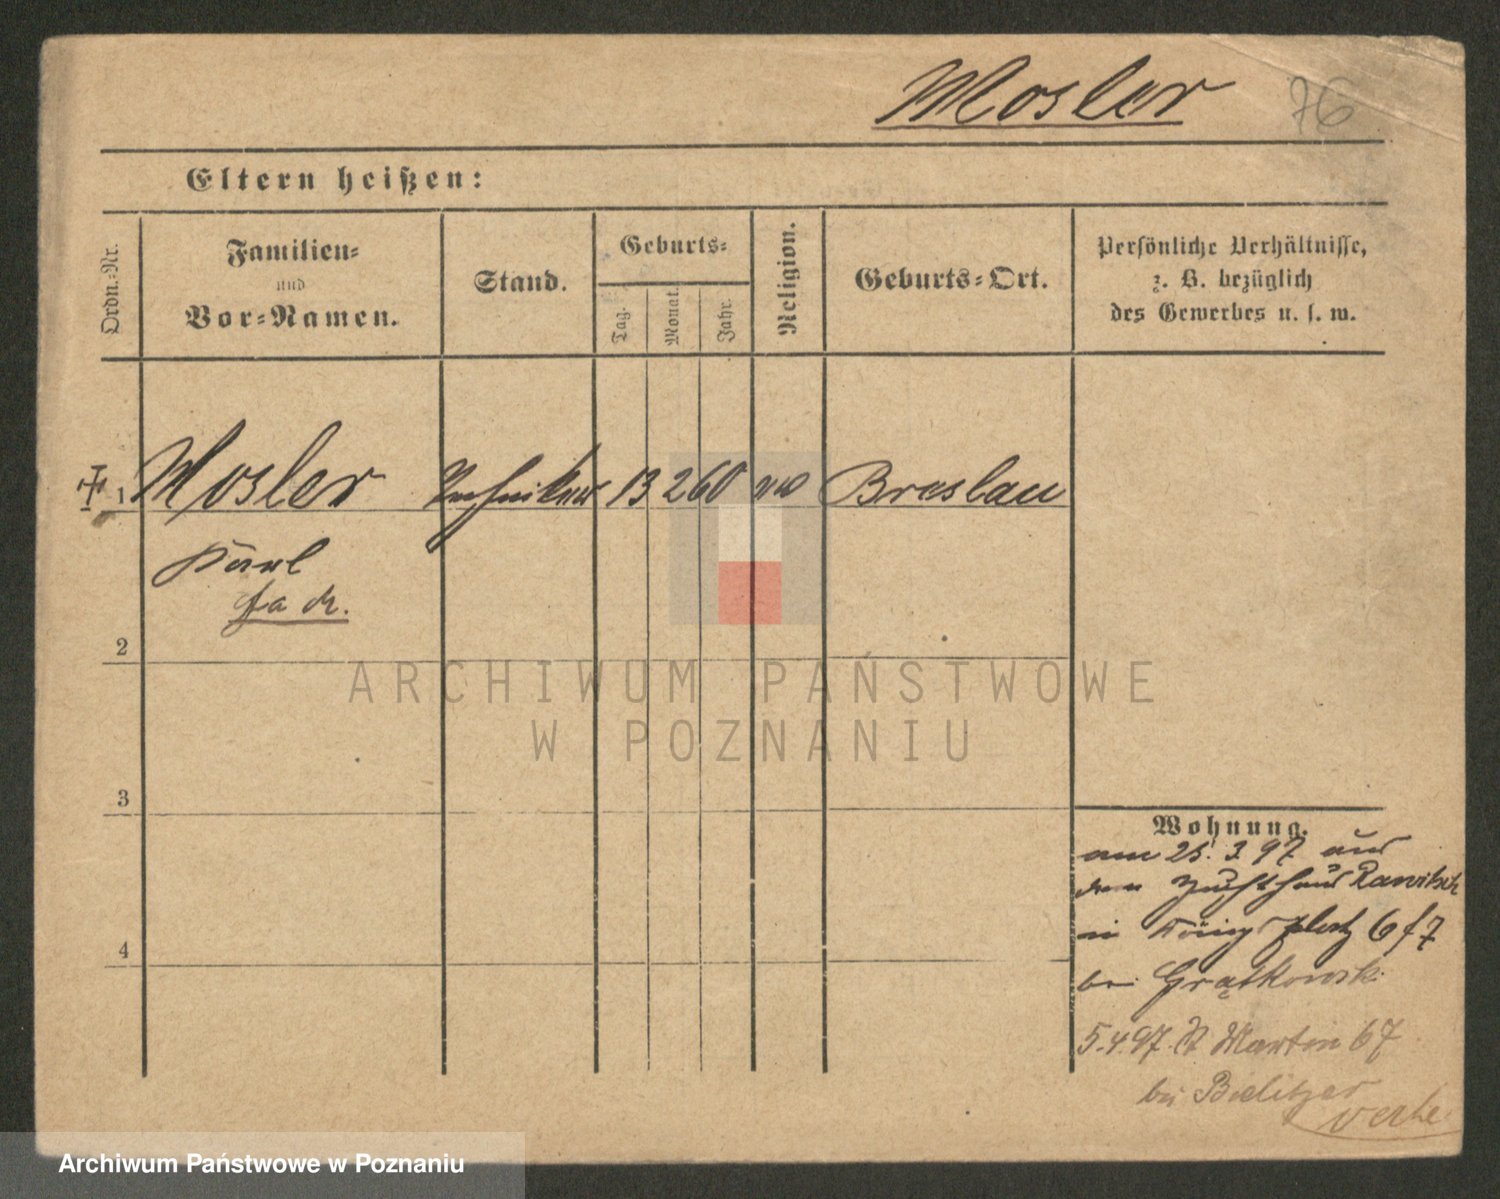 Mosler 76
Eltern heißen:
Ordn.-Nr.
Familien-
und
Vor-Namen.
Stand.
Geburts-
Tag.
Monat.
Jahr.
Religion.
Geburts-Ort.
Persönliche Verhältnisse,
z. B. bezüglich
des Gewerbes u. s. w.
1 Mosler Techniker 13 2 60 Breslau
Karl
2
3
4
Wohnung.
am 25. 3 97 aus
dem Zuchthaus Rawitsch
in Königsplatz 6 f 7
bei Grątkowski
5.4.97. St Martin 67
bei Bielitzer
ARCHIWUM PAŃSTWOWE
W POZNANIU
Archiwum Państwowe w Poznaniu